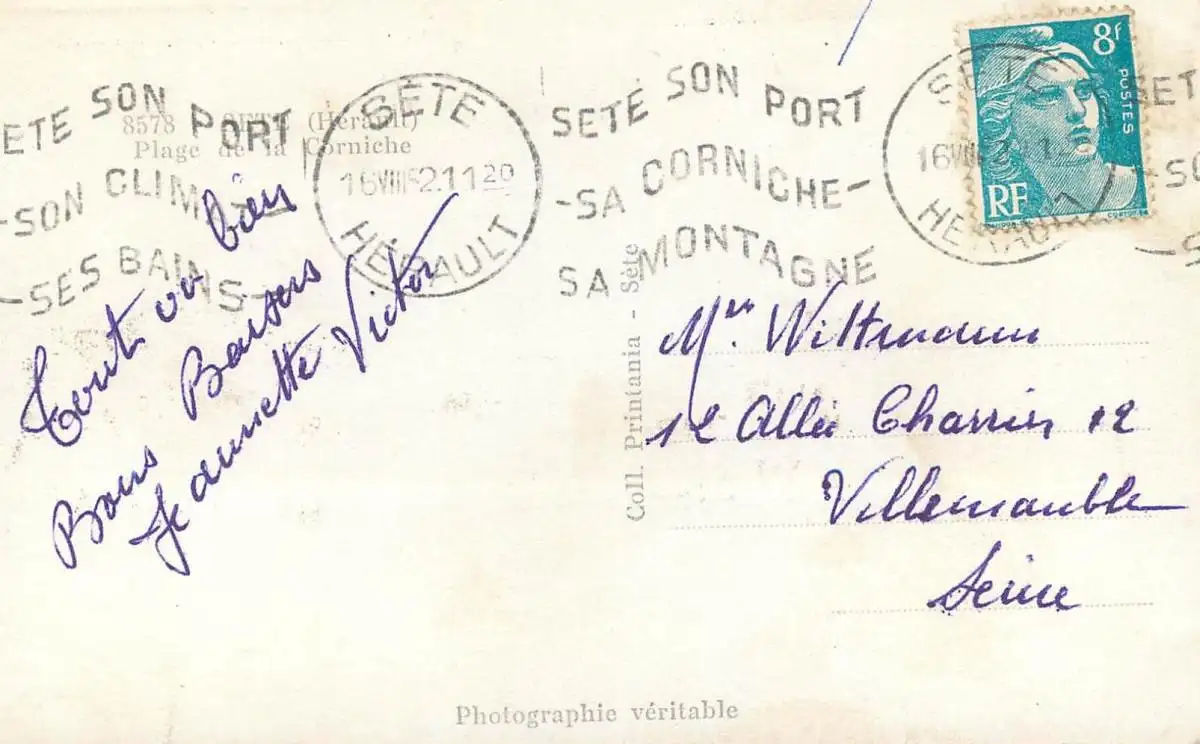 ETE SON PORT
-SON CLIMAT-
-SES BAINS-
8578 - SETE (Hérault)
Plage de la Corniche
SÈTE
16 VIII 52 11 20
HERAULT
SETE SON PORT
-SA CORNICHE-
SA MONTAGNE
SÈTE
16 VIII 52 11
HERAULT
8f
POSTES
RF
SETE
Tout va bien
Bons Baisers
Jeannette Victor
Coll. Printania - Sète
Mr Wittmann
12 Allée Charrier 12
Villemomble
Seine
Photographie véritable